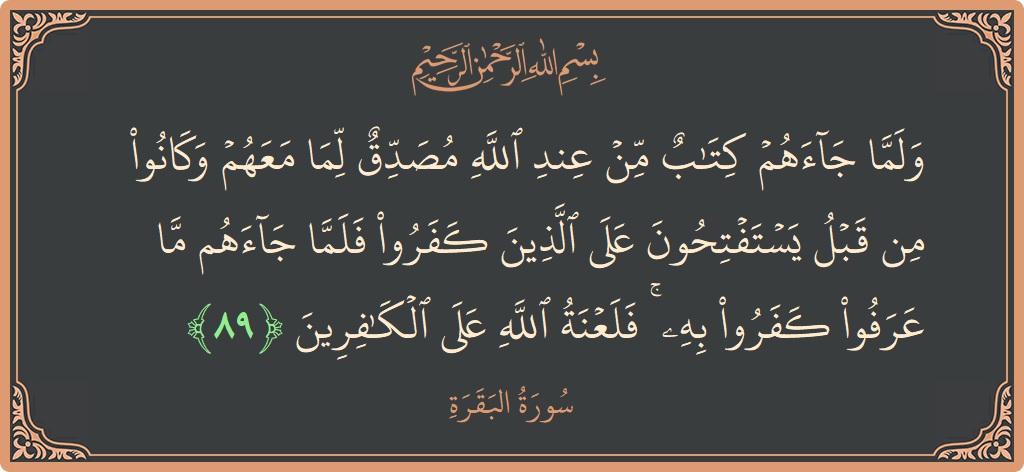 بِسْمِ اللَّهِ الرَّحْمَٰنِ الرَّحِيمِ
وَلَمَّا جَآءَهُمۡ كِتَٰبٌ مِّنۡ عِندِ ٱللَّهِ مُصَدِّقٌ لِّمَا مَعَهُمۡ وَكَانُواْ
مِن قَبۡلُ يَسۡتَفۡتِحُونَ عَلَى ٱلَّذِينَ كَفَرُواْ فَلَمَّا جَآءَهُم مَّا
عَرَفُواْ كَفَرُواْ بِهِۦۚ فَلَعۡنَةُ ٱللَّهِ عَلَى ٱلۡكَٰفِرِينَ ﴿٨٩﴾
سُورَةُ البَقَرَةِ